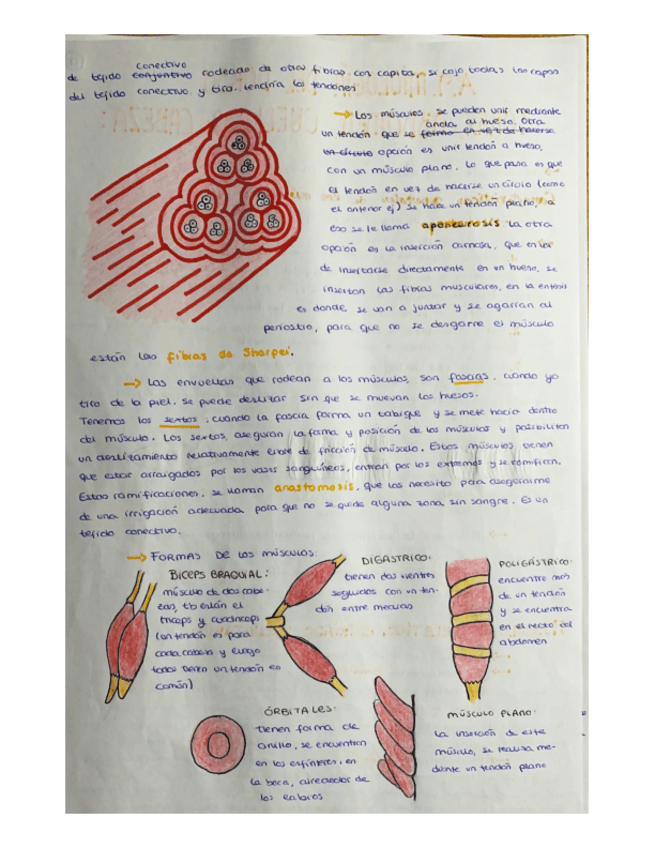 conectivo
de tejido conjuntivo rodeado de otras fibras con capita, se cojo todas las capas
del tejido conectivo y tira, tendría los tendones
→ Los músculos se pueden unir mediante
ancla al hueso. Otra
un tendón que se forma en vez de hacerse
un círculo opción es unir tendón a hueso,
con un músculo plano. Lo que pasa es que
el tendón en vez de hacerse un círculo (como
el anterior ej) se hace un tendón plano, a
eso se le llama aponeurosis. La otra
opción es la inserción carnosa, que en vez
de insertarse directamente en un hueso, se
insertan las fibras musculares, en la entesis
es donde se van a juntar y se agarran al
periostio, para que no se desgarre el músculo
están las fibras de Sharpei.
→ Las envueltas que rodean a los músculos, son fascias, cuando yo
tiro de la piel, se puede deslizar sin que se muevan los huesos.
Tenemos los sextos, cuando la fascia forma un tabique y se mete hacia dentro
del músculo. Los sextos, aseguran la forma y posición de los músculos y posibilitan
un deslizamiento relativamente libre de fricción de músculo. Estos músculos tienen
que estar arraigados por los vasos sanguíneos, entran por los extremos y se ramifican.
Estas ramificaciones, se llaman anastomosis, que las necesito para asegurarme
de una irrigación adecuada para que no se quede alguna zona sin sangre. Es un
tejido conectivo.
→ FORMAS DE LOS MÚSCULOS:
BÍCEPS BRAQUIAL:
músculo de dos cabe-
zas, tb están el
tríceps y cuadríceps
(un tendón es para
cada cabeza y luego
todos tienen un tendón en
común)
DIGÁSTRICO:
tienen dos vientres
seguidos con un ten-
dón entre medias
POLIGÁSTRICO:
encuentre más
de un tendón
y se encuentra
en el recto del
abdomen
ÓRBITALES:
tienen forma de
anillo, se encuentran
en los esfínteres, en
la boca, alrededor de
los labios
MÚSCULO PLANO:
La inserción de este
músculo, se realiza me-
diante un tendón plano